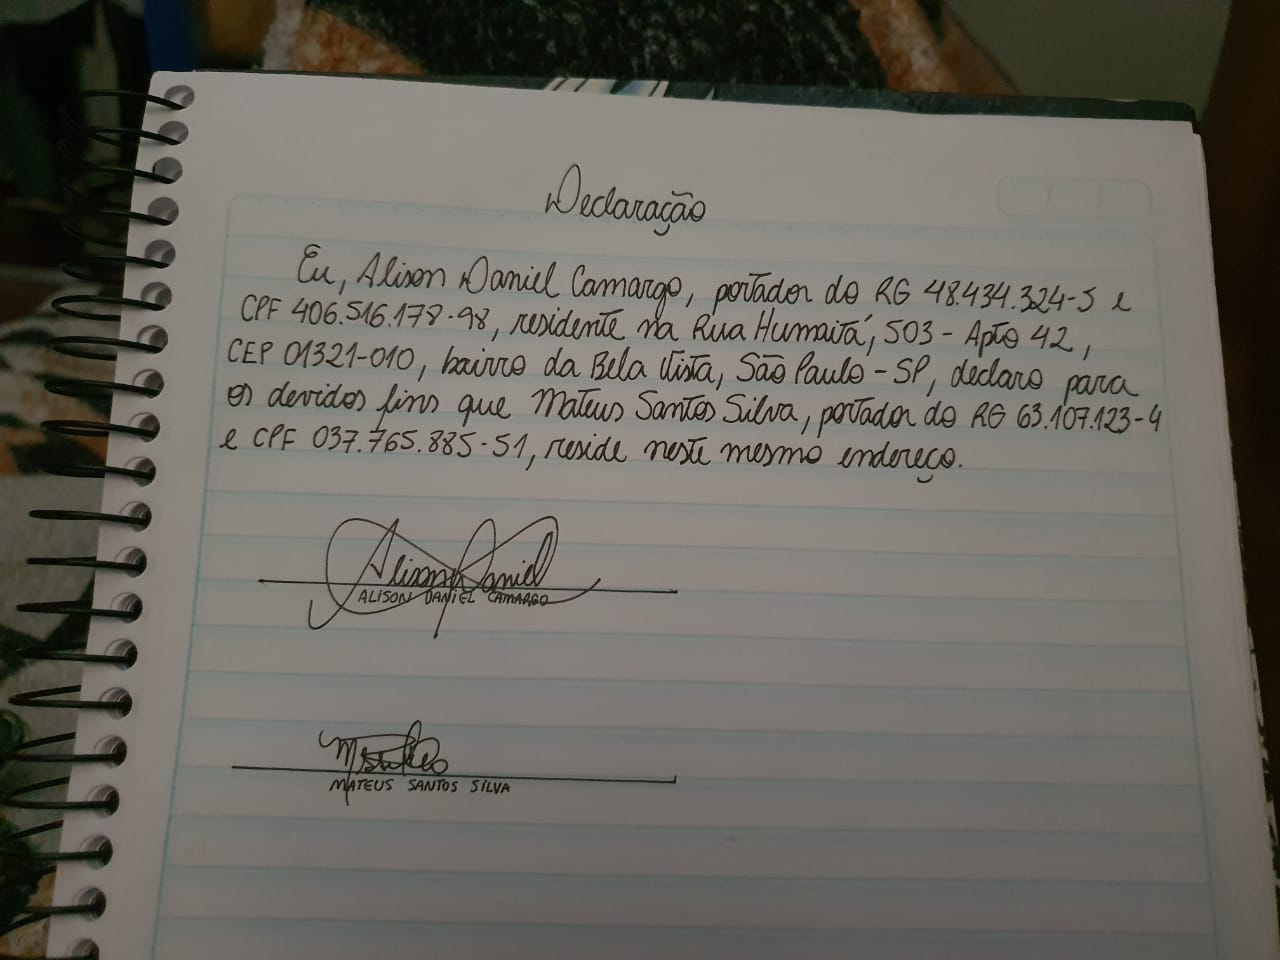 Declaração
Eu, Alison Daniel Camargo, portador do RG 48.434.324-5 e
CPF 406.516.178-98, residente na Rua Humaitá, 503 - Apto 42,
CEP 01321-010, bairro da Bela Vista, São Paulo - SP, declaro para
os devidos fins que Mateus Santos Silva, portador do RG 63.107.123-4
e CPF 037.765.885-51, reside neste mesmo endereço.
Alison Daniel
ALISON DANIEL CAMARGO
MATEUS SANTOS SILVA